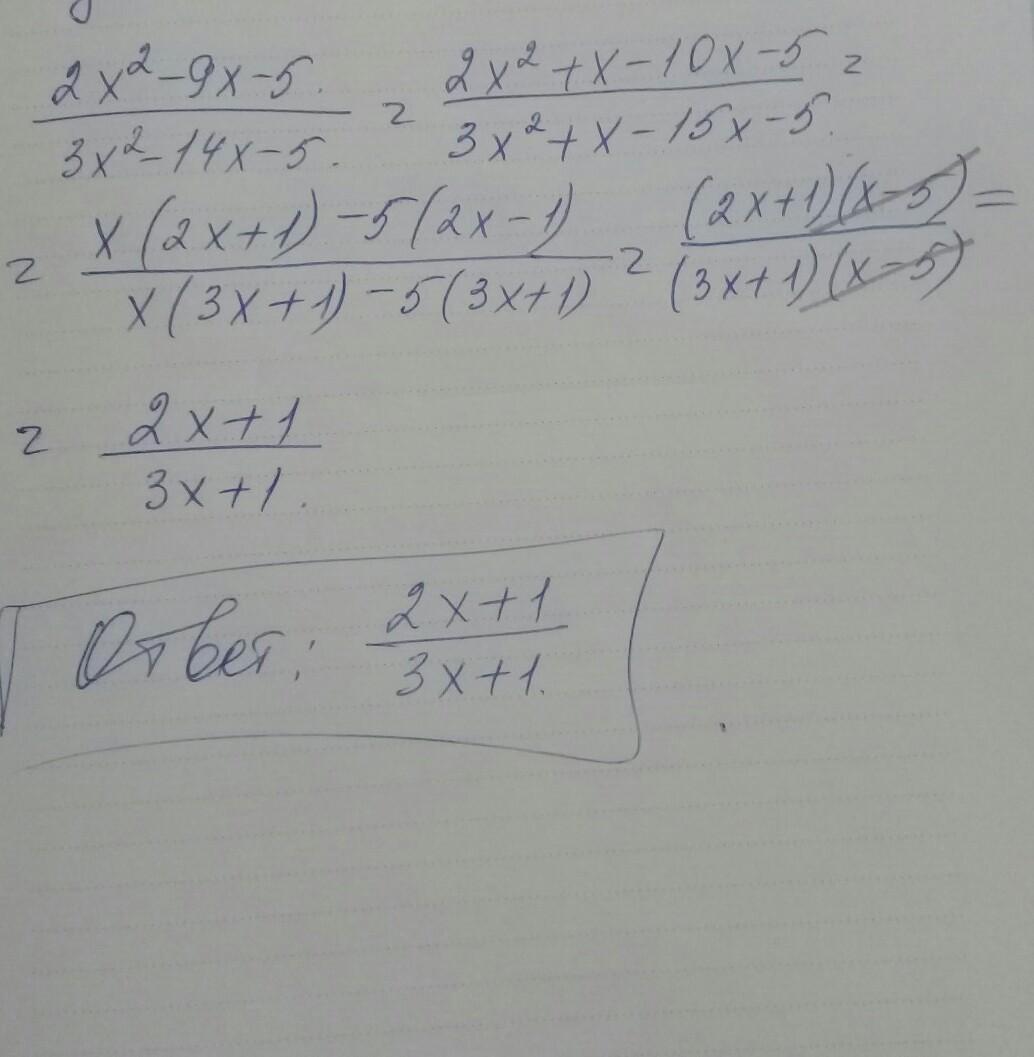 2x²-9x-5. / 3x²-14x-5. = 2x²+x-10x-5 / 3x²+x-15x-5. =
= x(2x+1)-5(2x-1) / x(3x+1)-5(3x+1) = (2x+1)(x-5) / (3x+1)(x-5) =
= 2x+1 / 3x+1.
Ответ: 2x+1 / 3x+1.